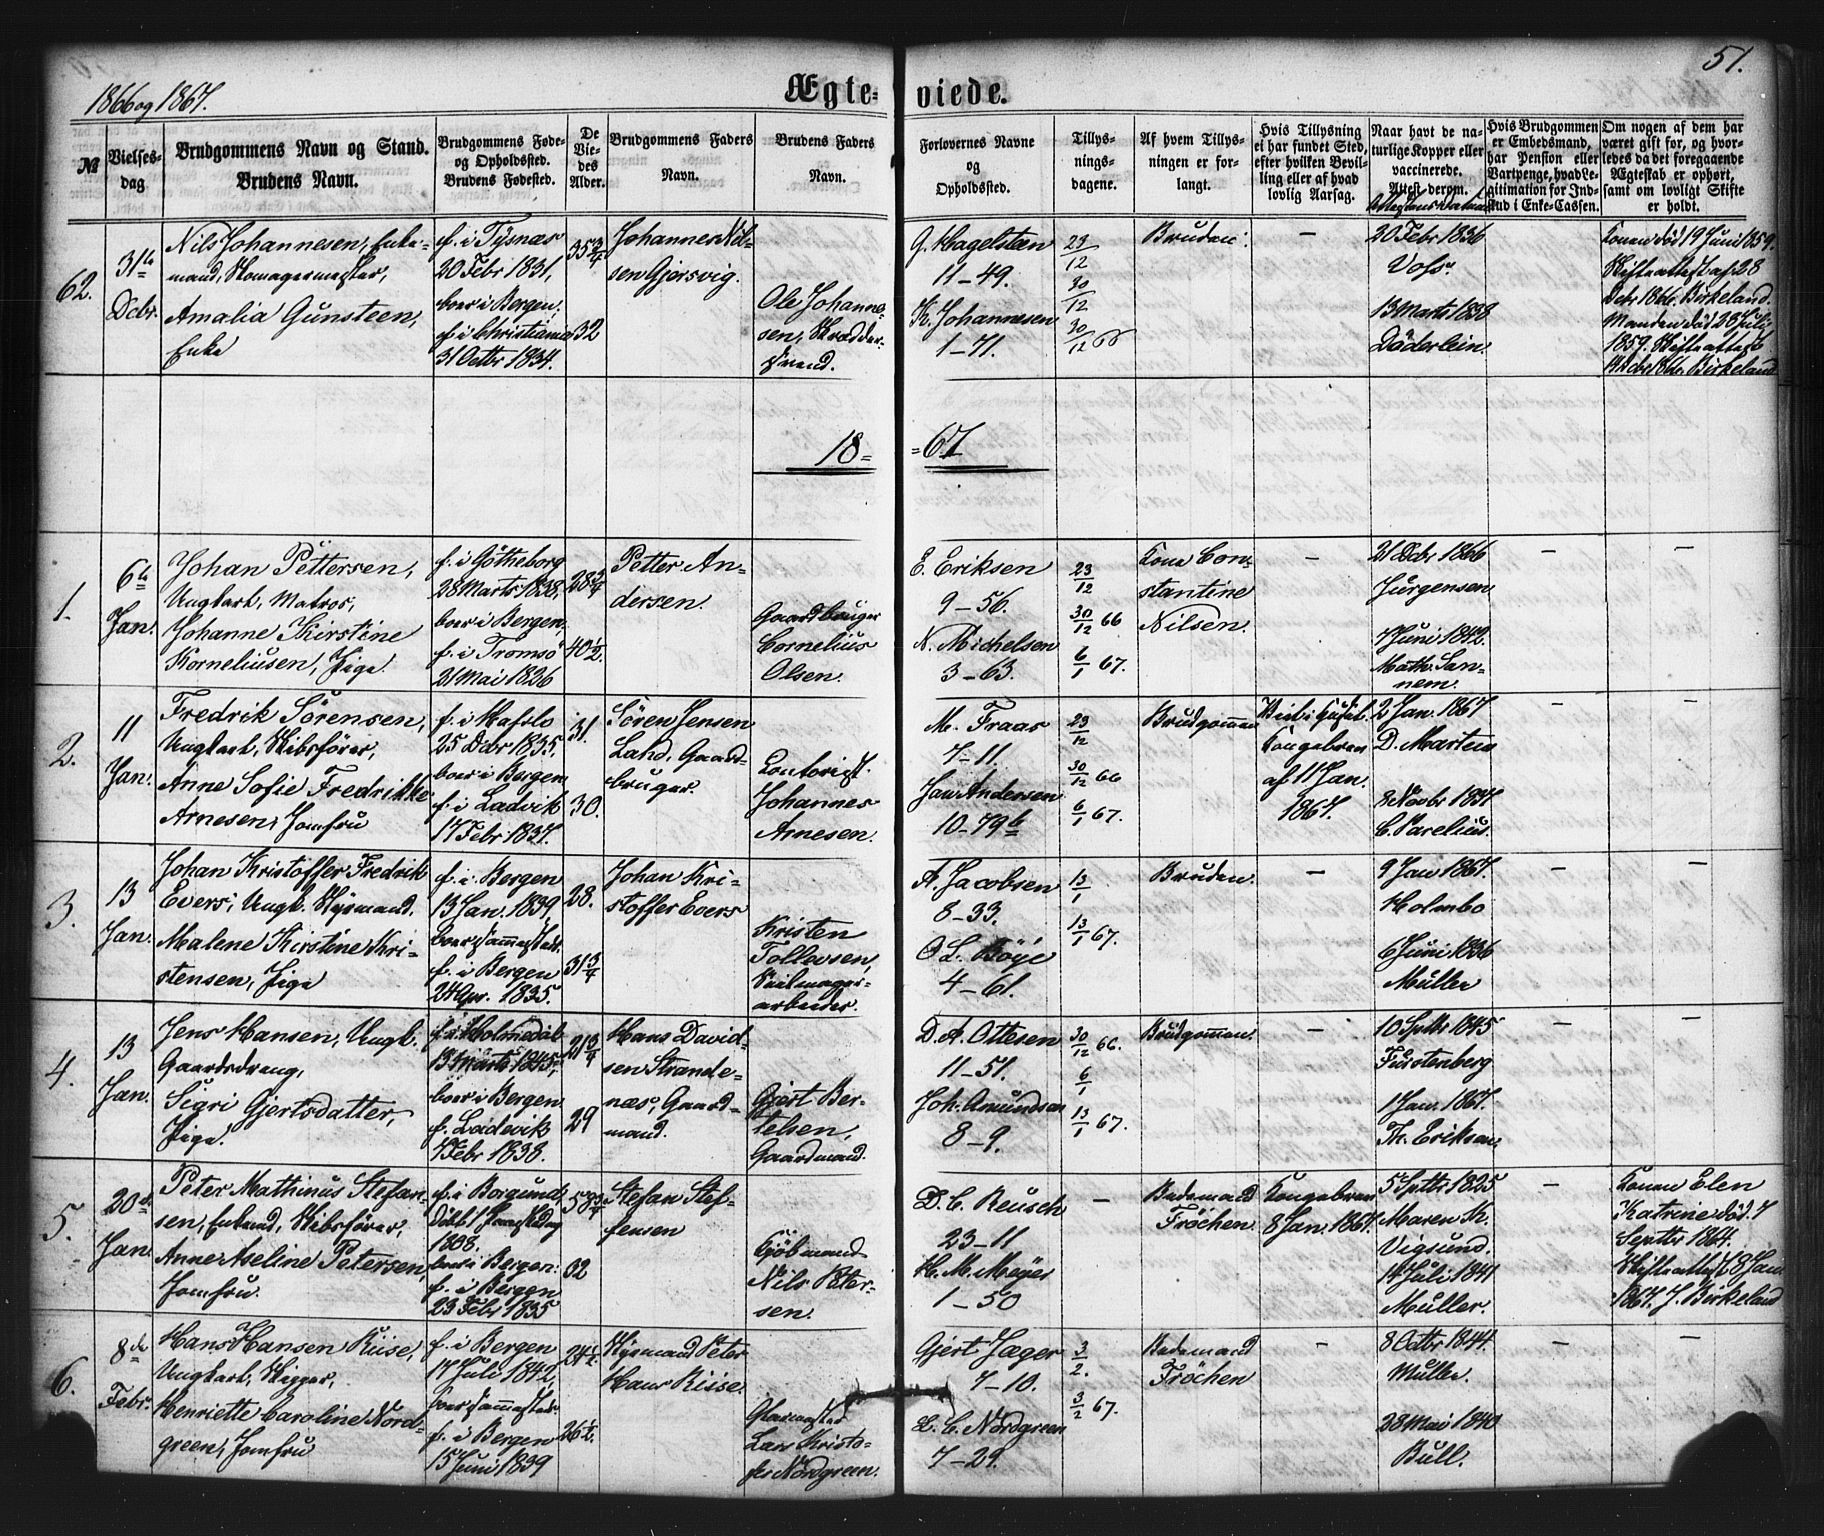 1866 og 1867.
Ægteviede.
51.
№
Vielses-
dag.
Brudgommens Navn og Stand.
Brudens Navn.
Brudgommens Føde-
og Opholdssted.
Brudens Fødested.
De
Vie-
des
Alder.
Brudgommens Faders
Navn.
Brudens Faders
Navn.
Forlovernes Navne
og
Opholdssted.
Tillys-
nings-
dagene.
Af hvem Tillys-
ningen er for-
langt.
Hvis Tillysning
ei har fundet Sted,
efter hvilken Bevil-
ling eller af hvad
lovlig Aarsag.
Naar havt de na-
turlige Kopper eller
vaccinerede.
Attest derom.
Hvis Brudgommen
er Embedsmand,
har Pension eller
Vartpenge, hvad Le-
gitimation for Ind-
skud i Enke-Cassen.
Om nogen af dem har
været gift før, og hvor-
ledes da det foregaaende
Ægteskab er ophørt,
samt om lovligt Skifte
er holdt.
62.
31te
Dcbr.
Nils Johannesen, Enke-
mand, Skomagermester,
Amalia Gunsteen,
Enke
f. i Tysnæs
20 Febr 1831,
boer i Bergen.
f. i Christiania
31 Octbr 1834.
35 3/4
32
Johannes Nil-
sen Gjersvig.
Ole Johanne-
sen, Skrædder-
svend.
G. Hagelsteen
11-49.
K. Johannesen
1-71.
23/12
30/12
30/12 66
Bruden.
—
20 Febr 1836
Voss.
13 Marts 1838
Döderlein.
Konen död 19 Juni 1859.
Skifteattest af 28
Dcbr 1866. Birkeland.
Manden död 28 Juli
1859. Skifteattest
14 Dcbr 1866 Birkeland
18=
=67
1.
6te
Jan.
Johan Pettersen,
Ungkarl, Matros,
Johanne Kirstine
Korneliusen, Pige.
f. i Götheborg
28 Marts 1838,
boer i Bergen,
f. i Tromsö
21 Mai 1826
28 3/4
40 1/2.
Petter An-
dersen.
Gaardbruger
Cornelius
Olsen.
E. Eriksen
9-56.
N. Michelsen
3-63.
23/12
30/12 66
6/1 67.
Kone Con-
stantine
Nilsen.
—
21 Dcbr 1866
Jürgensen
7 Juni 1842.
Math. San-
nem.
—
—
2.
11
Jan.
Fredrik Sörensen,
Ungkarl, Skibsförer,
Anne Sofie Fredrikke
Arnesen, Jomfru
f. i Hafslo
25 Dcbr 1835.
boer i Bergen
f. i Ladvik
17 Febr 1837.
31.
30.
Sören Jensen
Land, Gaard-
bruger.
Contorist
Johannes
Arnesen.
M. Fraas
7-11.
Jan Andersen
10-79 b
23/12
30/12 66
6/1 67.
Brudgommen
Viet i Huset.
Kongebrev
af 11 Jan.
1867.
2 Jan. 1867
D. Martens
8 Novbr 1837
C. Parelius.
—
—
3.
13
Jan.
Johan Kristoffer Fredrik
Evers, Ungk. Styrmand.
Malene Kirstine Kri-
stensen, Pige
f. i Bergen
13 Jan. 1839,
boer sammesteds.
f. i Bergen
24 Apr. 1835.
28.
31 3/4
Johan Kri-
stoffer Evers
Kristen
Tollevsen,
Seilmager-
arbeider.
A. Jacobsen
8-33.
O. L. Böye
4-61.
13/1
13/1 67.
Bruden.
—
9 Jan 1867.
Holmbo
6 Juni 1836
Müller
—
—
4.
13
Jan.
Jens Hansen, Ungk.
Gaardsdreng,
Sigri Gjertsdatter,
Pige.
f. i Holmedal
13 Marts 1845,
boer i Bergen
f. Ladevik
7 Febr 1838.
21 3/4
29
Hans David-
sen Strande-
næs, Gaard-
mand.
Gjert Ber-
telsen,
Gaardmand.
D. A. Ottesen
11-51.
Joh. Amundsen
8-9.
30/12 66.
6/1
13/1 67.
Brudgommen.
—
10 Sptbr 1845
Fürstenberg
1 Jan. 1867.
Th. Eriksen.
—
—
5.
20de
Jan.
Peter Mathinus Stefan-
sen, Enkemd, Skibsförer,
Anne Aseline Petersen,
Jomfru.
f. i Borgund
1808.
boer i Bergen.
f. i Bergen
23 Febr 1835
58 3/4
32
Stefan Stef-
fensen
Kjöbmand
Nils Peter-
sen.
D. C. Reusch
23-11
H. M. Meyer
1-50
—
Bedemand
Fröchen.
Kongebrev
8 Jan. 1867.
5 Sptbr 1825
Maren Th.
Vigsund.
14 Juli 1841
Müller.
—
Konen Elen
Katrine död 7
Septbr 1864.
Skifteattest 8 Jan.
1867. J. Birkeland
6.
8de
Febr.
Hans Hansen Riise,
Ungkarl, Skipper,
Henriette Caroline Nord-
green, Jomfru
f. i Bergen
17 Juli 1842,
boer sammesteds.
f. i Bergen
15 Juni 1839
24 1/2.
26 1/2.
Styrmand Peter
Hans Riise.
Glarmester
Lars Kristo-
fer Nordgreen.
Gjert Jæger
7-10.
L. C. Nordgreen
7-29.
3/2.
3/2 67.
Bedemand
Fröchen
—
8 Octbr 1844.
Müller.
28 Mai 1840
Bull.
—
—